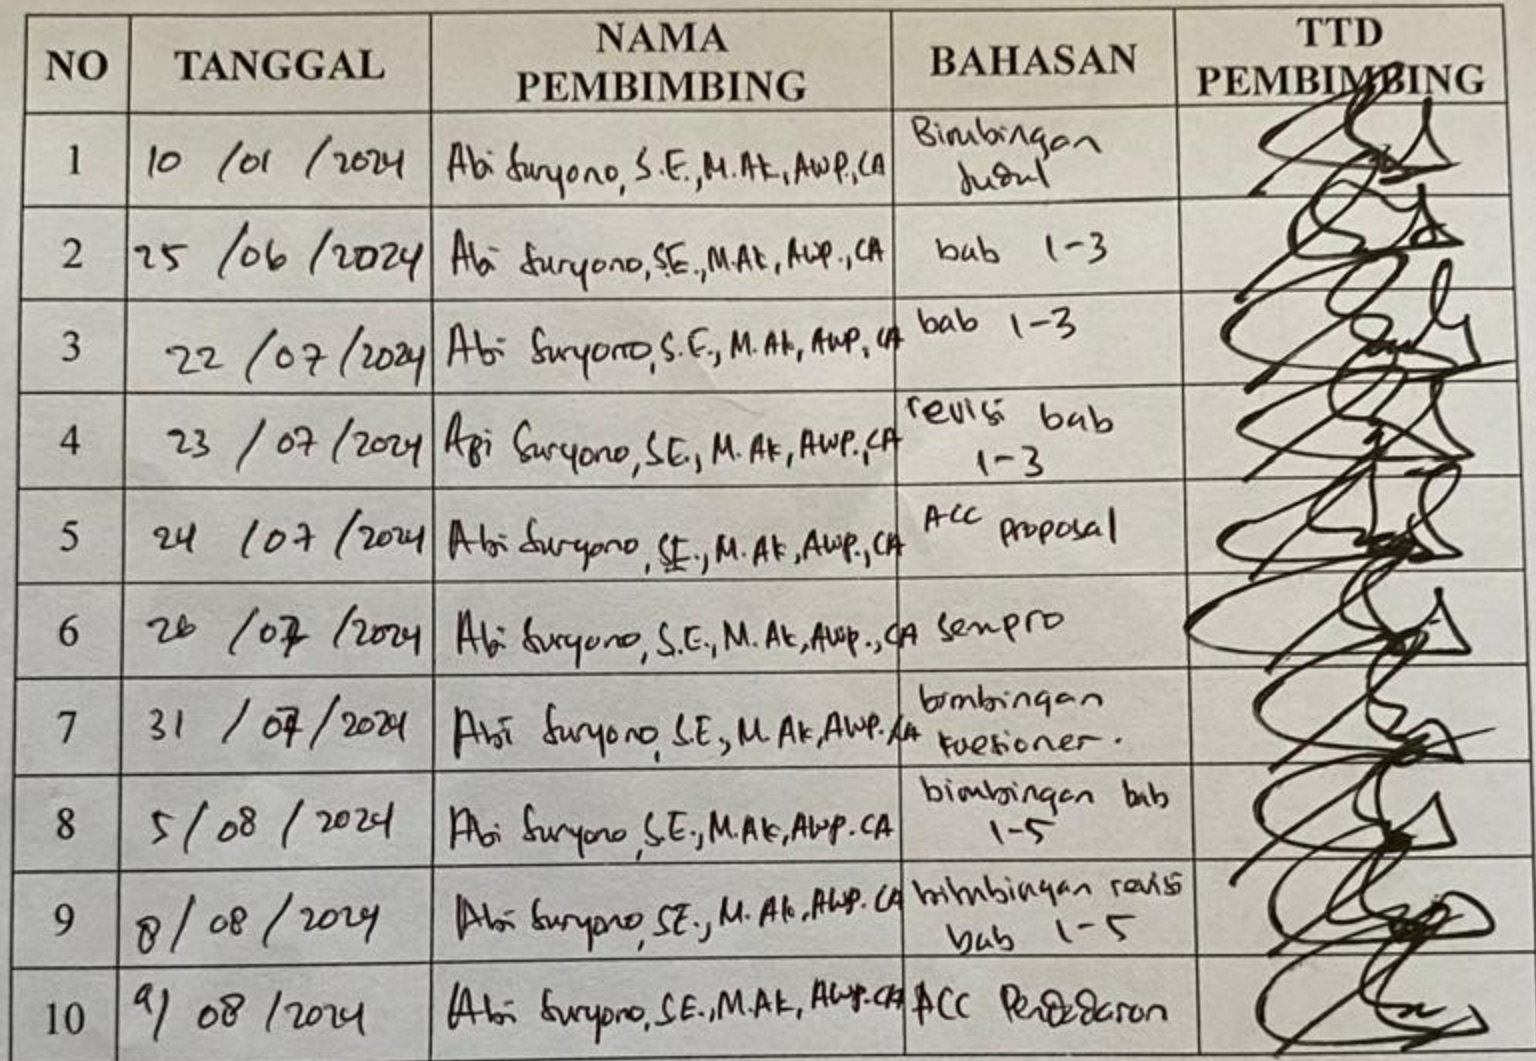 NO TANGGAL NAMA PEMBIMBING BAHASAN TTD PEMBIMBING
1 10 /01 /2024 Abi Suryono, S.E., M.Ak, AWP., CA Bimbingan Judul
2 25 /06 /2024 Abi Suryono, SE., M.Ak, AWP., CA bab 1-3
3 22 /07 /2024 Abi Suryono, S.E., M.Ak, AWP, CA bab 1-3
4 23 /07 /2024 Abi Suryono, SE., M.Ak, AWP., CA revisi bab 1-3
5 24 /07 /2024 Abi Suryono, SE., M.Ak, AWP., CA ACC proposal
6 26 /07 /2024 Abi Suryono, S.E., M.Ak, AWP., CA sempro
7 31 /07 /2024 Abi Suryono, S.E., M.Ak, AWP. CA bimbingan kuesioner.
8 5/ 08 / 2024 Abi Suryono, S.E., M.Ak, AWP. CA bimbingan bab 1-5
9 8/ 08 / 2024 Abi Suryono, SE., M.Ak, AWP. CA bimbingan revisi bab 1-5
10 9/ 08 /2024 Abi Suryono, SE., M.Ak, AWP. CA ACC Pendadaran